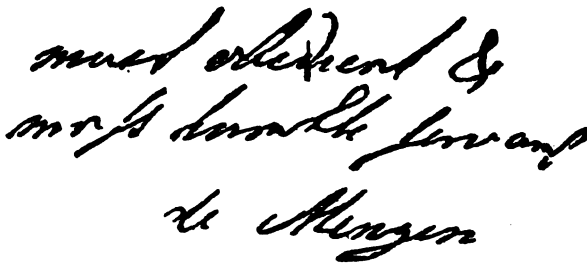 most obedient &
most humble servant
de Mengen